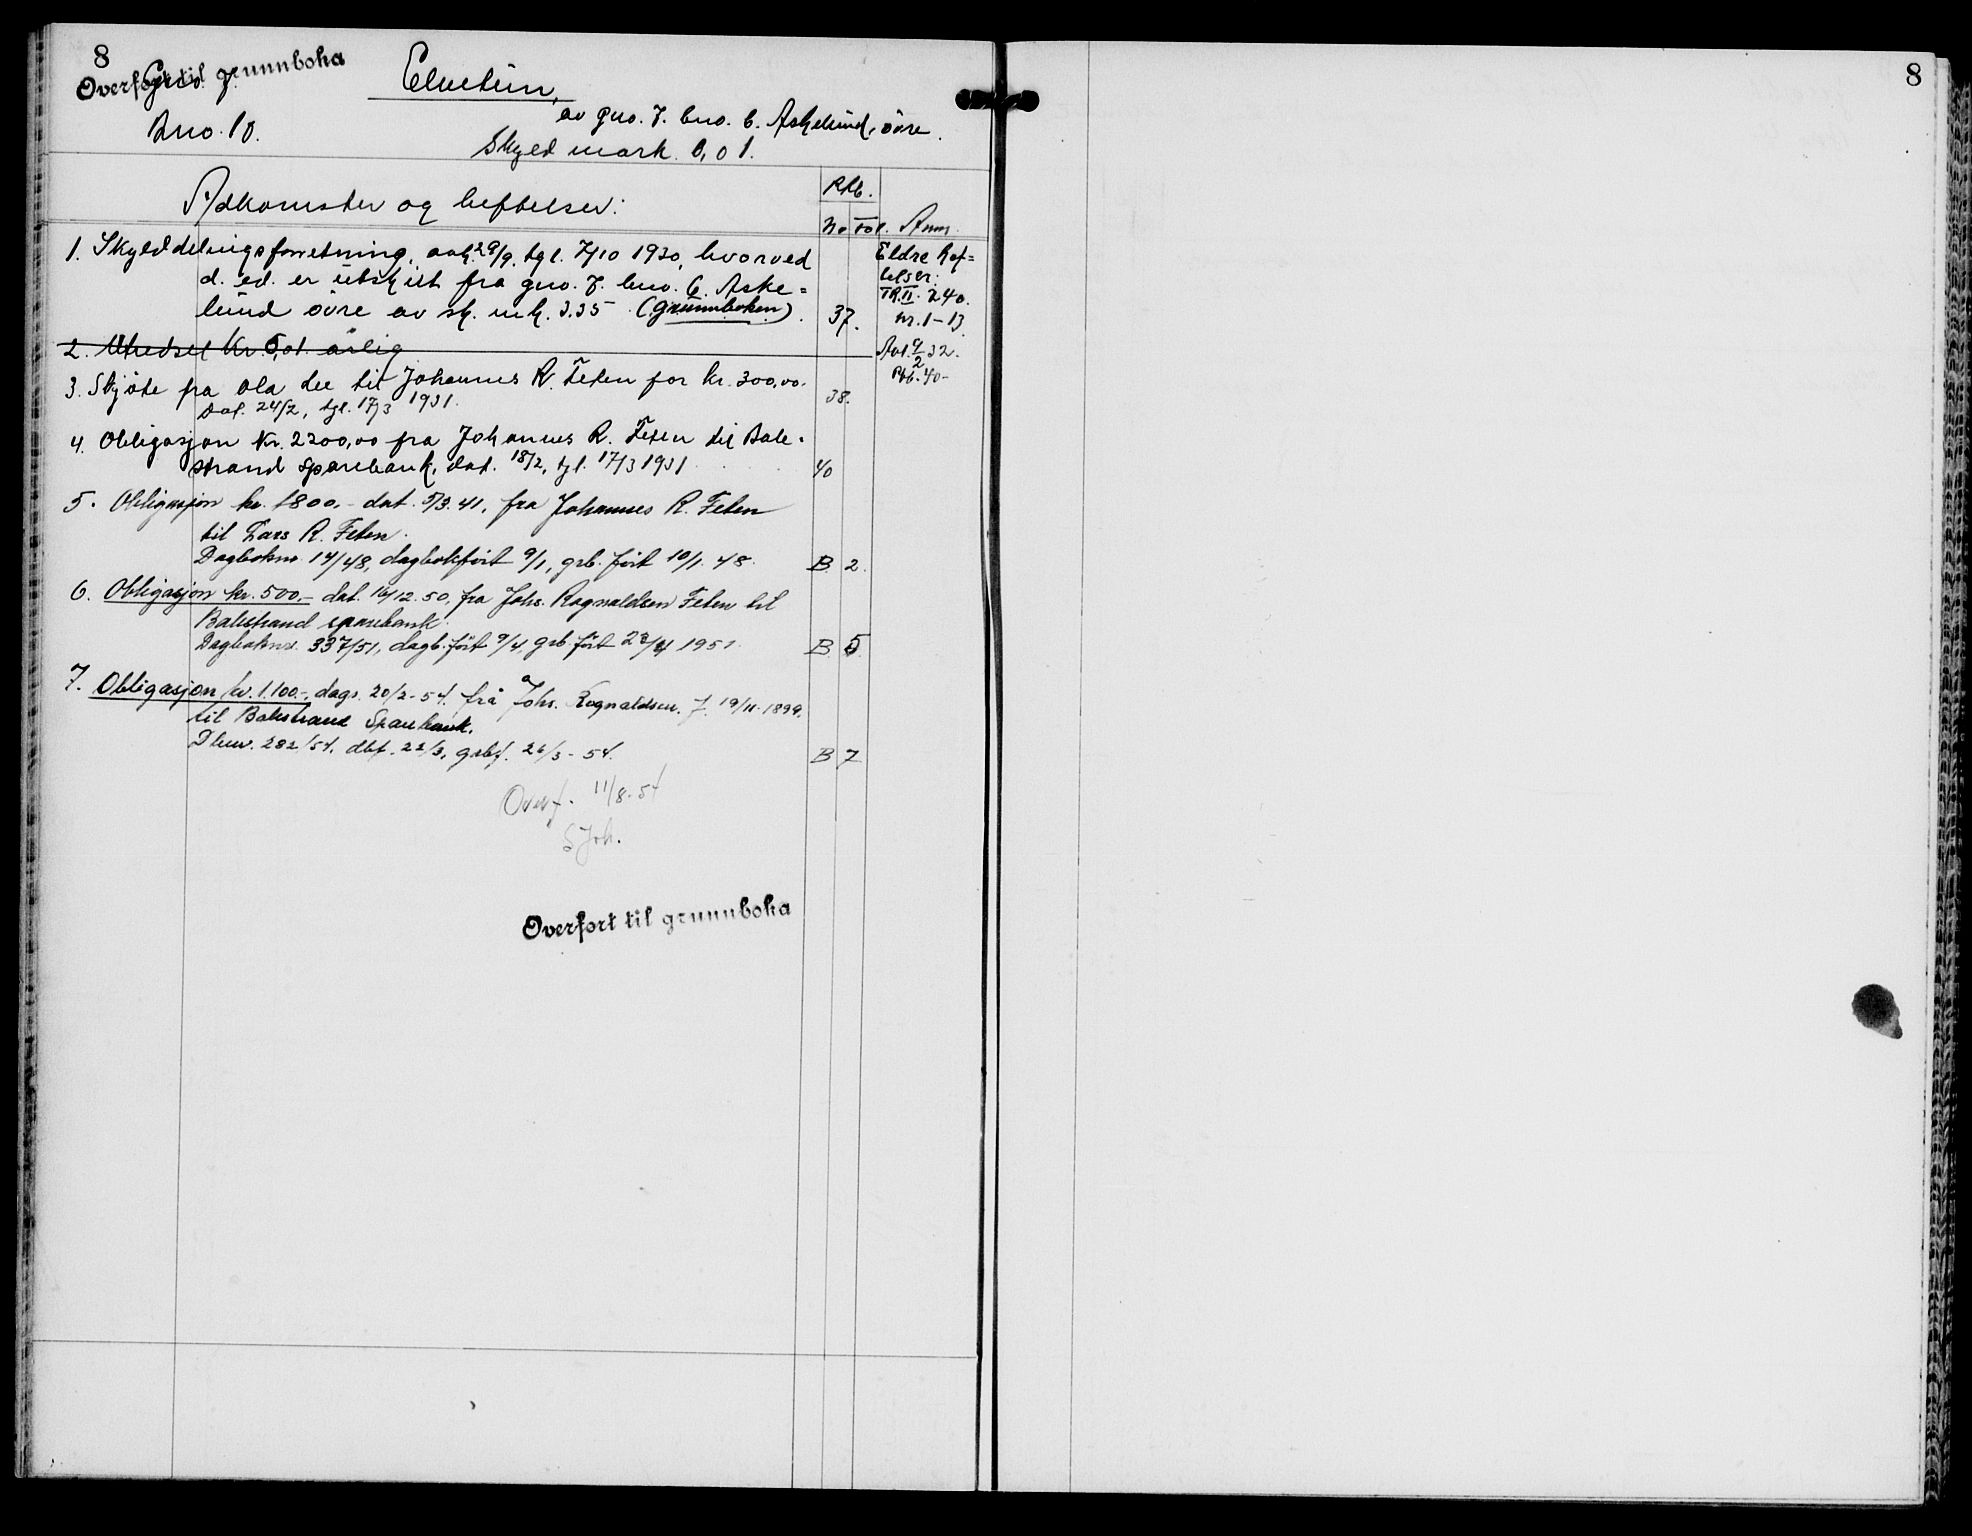 8
Overført til grunnboka
Gno. 7.
Elvetun,
av gno. 7. bno. 6. Askelund, øvre.
Bno. 10.
Skyld mark 0,01.
Adkomster og heftelser:
Ptb.
No Fol. Anm.
1. Skylddelingsforretning, avh. 29/9, tgl. 7/10 1930, hvorved
d. ed. er utskilt fra gno. 7. bno. 6. Aske=
lund øvre av sk. mk. 3.35 (Grunnboken).
37.
Eldre hef=
telser:
PR. II. 240.
nr. 1-13.
2. Utredsel kr. 5,01 årlig
Avl. 9/2 32.
Ptb. 40-
3. Skjøte fra Ola Lee til Johannes R. Feten for kr. 300,00.
Dat. 24/2, tgl. 17/3 1931.
38.
4. Obligasjon kr. 2200,00 fra Johannes R. Feten til Bale-
strand Sparebank, dat. 18/2, tgl. 17/3 1931
40
5. Obligasjon kr. 1800,- dat. 5/3. 41, fra Johannes R. Feten
til Lars R. Feten.
Dagboknr. 14/48, dagbokført 9/1, grb. ført 10/1. 48.
B. 2.
6. Obligasjon kr. 500,- dat. 16/12. 50, fra Johs. Ragnaldsen Feten til
Balestrand sparebank.
Dagboknr. 337/51, dagb. ført 9/4, grb. ført 23/4 1951.
B. 5.
7. Obligasjon kr. 1.100.-, dags. 20/2-54. frå Johs. Rognaldsen. f. 19/11-1899.
til Balestrand Sparebank.
Dbnr. 282/54. dbf. 22/3, grbf. 26/3-54.
B 7
Overf. 11/8-54
S Joh.
Overført til grunnboka
8